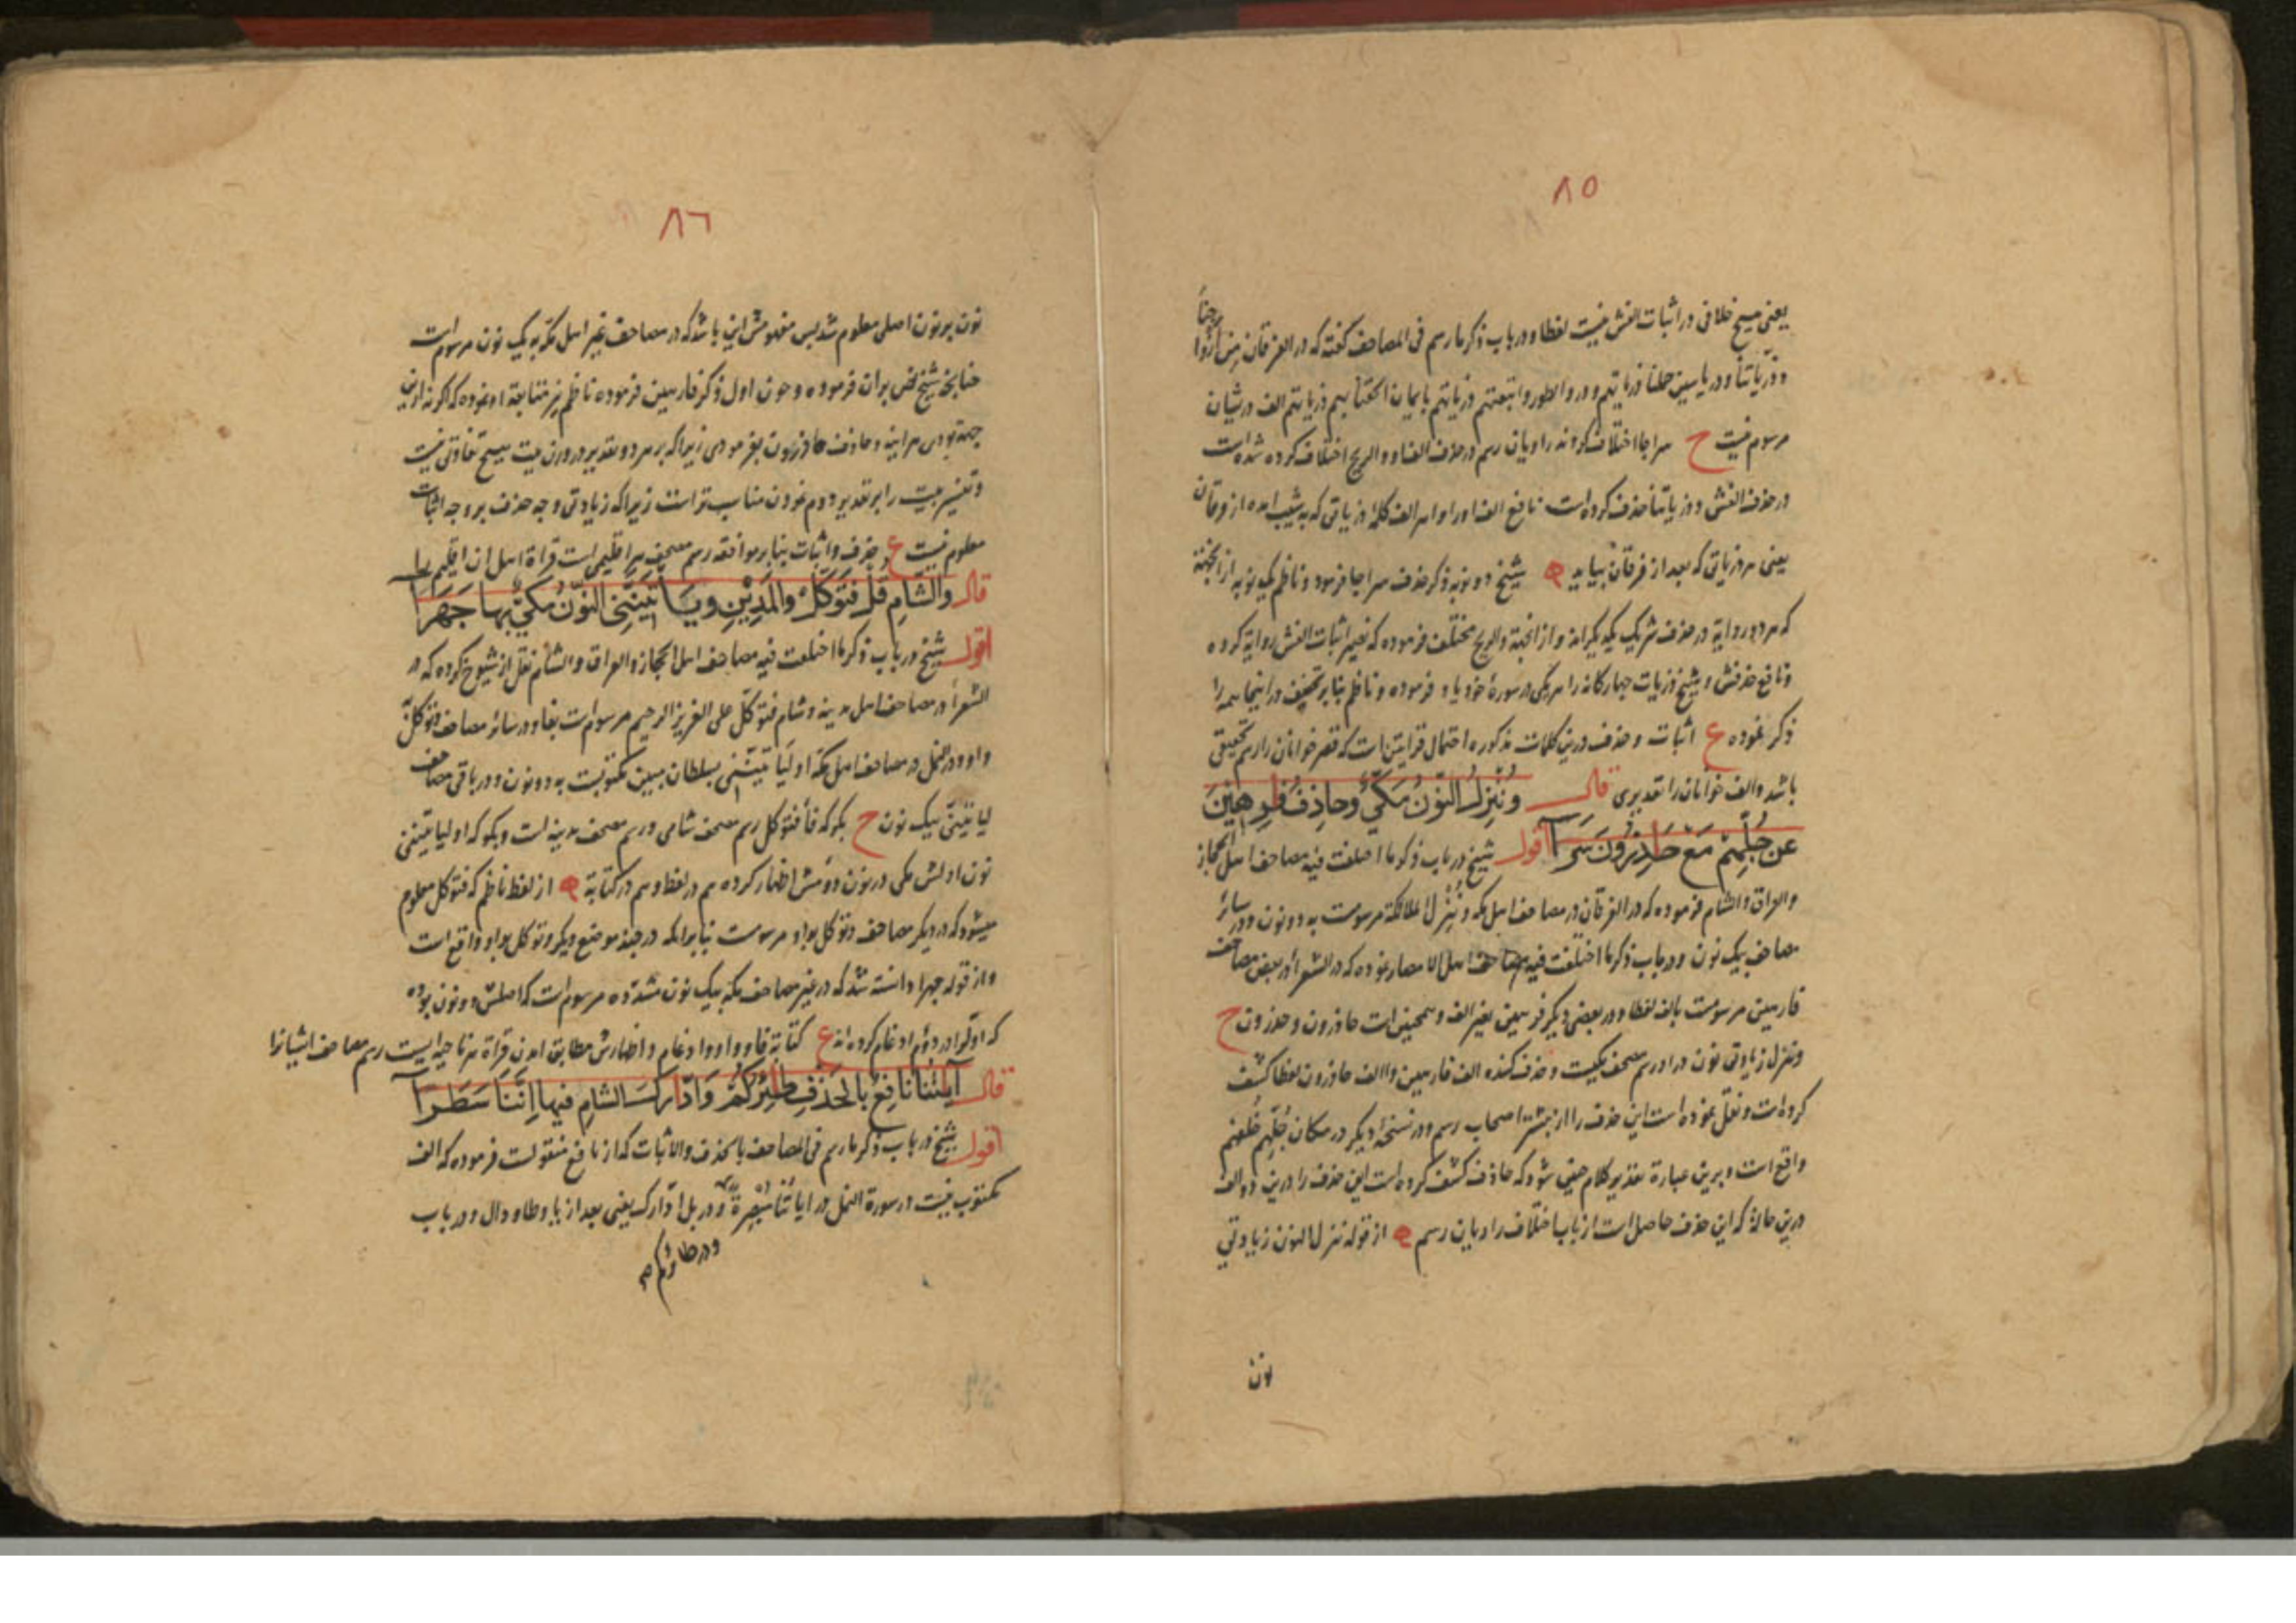 ٨٥
یعنی هیچ خلافی در اثبات الفش نیست لفظا و در باب ذکر ما رسم فی المصاحف گفته که در الفرقان من ازواجنا
وذریاتنا و در یاسین حملنا ذریاتهم و در والطور واتبعتهم ذریاتهم بایمان الحقنا بهم ذریاتهم الف در شیان
مرسوم نیست ح سراجا اختلاف کردند راویان رسم در حذف الف او و الریح اختلاف کرده شده است
در حذف الفش و ذریاتنا حذف کرده است نافع الف اورا و الف کلمه ذریاتی که
یعنی هر ذریاتی که بعد از فرقان بیاید ه شیخ دو نوبه ذکر حذف سراجا فرمود و ناظم یک نوبه از آنجهته
که هر دو روایة در حذف شریک یکدیگراند و از انجهة والریح مختلف فرموده که نصیر اثبات الفش روایة کرده
و نافع حذفش و شیخ ذریات چهارکانه را هر یکی در سورهٔ خود یاد فرموده و ناظم بنابر تخفیف در اینجا همه را
ذکر نموده ع اثبات و حذف درین کلمات مذکوره احتمال قرایتین است که قصر خوانان را رسم تحقیقی
باشد و الف خوانان را تقدیری قال وننزل النون مکی وحاذف فرهین
عن جلهم مع حاذرون سرا اقول شیخ در باب ذکر ما اختلفت فیه مصاحف اهل الحجاز
والعراق والشام فرموده که در الفرقان در مصاحف اهل مکه وننزل الملائکة مرسومست به دو نون و در سائر
مصاحف بیک نون و در باب ذکر ما اختلفت فیه مصاحف اهل الامصار نموده که در الشعرا در بعض مصاحف
فارهین مرسومست بالف لفظا و در بعضی دیگر فرهین بغیر الف و همچنین است حاذرون و حذرون ح
وننزل زیادتی نون در او رسم مصحف مکیست و حذف کننده الف فارهین و الف حاذرون لفظا کشف
کرده است و نقل نموده است این حذف را از بیشتر اصحاب رسم و در نسخهٔ دیگر در مکان جلهم خلفهم
واقع است و برین عبارة تقدیر کلام چنین شود که حاذف کشف کرده است این حذف را درین دو الف
درین حال که این حذف حاصل است از باب اختلاف راویان رسم ه از قوله ننزل النون زیادتی
نون
٨٦
نون بر نون اصلی معلوم شد پس مفهومش این باشد که در مصاحف غیر اهل مکه به یک نون مرسوم است
چنانچه شیخ نص بران فرموده و چون اول ذکر فارهین فرموده ناظم نیز متابعة او نموده که اگر نه ازین
جهة بودی هر آینه و حاذف حاذرون بفرمودی زیرا که بر هر دو تقدیر در وزن بیت هیچ تفاوتی نیست
و تفسیر بیت را بر تقدیر دوم نمودن مناسب تر است زیرا که زیادتی وجه حذف بر وجه اثبات
معلوم نیست ع حذف و اثبات بنا بر موافقه رسم مصحف هر اقلیمی است قراة اهل ان اقلیم را
قال والشام قل فتوکل والمدین ویأتیننی النون مکی بها جهرا
اقول شیخ در باب ذکر ما اختلفت فیه مصاحف اهل الحجاز والعراق والشام نقل از شیوخ کرده که در
الشعرا در مصاحف اهل مدینه و شام فتوکل علی العزیز الرحیم مرسوم است بفا و در سائر مصاحف وتوکل
واو و در النمل در مصاحف اهل مکه او لیأتیننی بسلطان مبین مکتوبست به دو نون و در باقی مصاحف
لیأتینی بیک نون ح بگو که فأ فتوکل رسم مصحف شامی و رسم مصحف مدینه است و بگو که او لیاتیننی
نون اولش مکی در نون دومش اظهار کرده هم در لفظ و هم در کتابة ه از لفظ ناظم که فتوکل معلوم
میشود که در دیگر مصاحف وتوکل بواو مرسومست بنابرانکه در چند موضع دیگر وتوکل بواو واقع است
و از قوله جهرا دانسته شد که در غیر مصاحف مکه بیک نون مشدده مرسوم است که اصلش دو نون بوده
که اول را در دوم ادغام کرده اند ع کتابة فا و واو و ادغام و اظهارش مطابق امدن قراة هر ناحیه ایست رسم مصاحف ایشانرا
قال آیتنا نافع بالحذف طئرکم وادارک الشام فیها اننا سطرا
اقول شیخ در باب ذکر ما رسم فی المصاحف بالحذف والاثبات که از نافع منقولست فرموده که الف
مکتوب نیست در سورة النمل در ایاتنا مبصرة و در بل ادارک یعنی بعد از یا و طا و دال و در باب
و در طائرکم صح